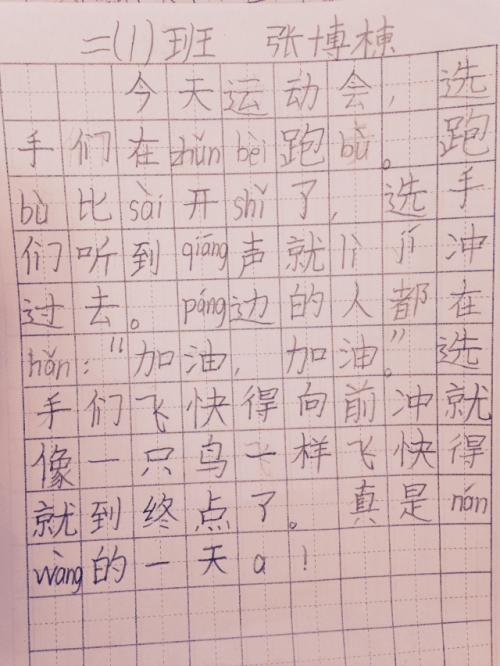 二(1)班 张博栋
今天运动会，选
手们在zhǔn bèi跑bù。跑
bù比sài开shǐ了，选手
们听到qiāng声就lì jí冲
过去。páng边的人都在
hǎn：“加油，加油。”选
手们飞快得向前冲就
像一只鸟一样飞快得
就到终点了。真是nán
wàng的一天a！